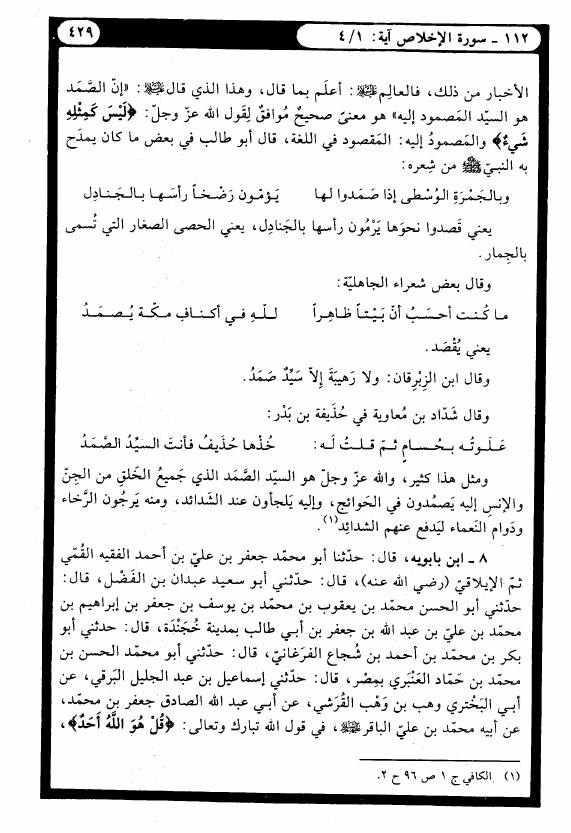 ١١٢ ـ سورة الإخلاص آية: ٤/١
٤٢٩
الأخبار من ذلك، فالعالِمﷺ: أعلَم بما قال، وهذا الذي قالﷺ: «إنّ الصَّمَد
هو السيّد المَصمود إليه» هو معنىً صحيحٌ مُوافقٌ لِقَول الله عزّ وجلّ: ﴿لَيْسَ كَمِثْلِهِ
شَيءٌ﴾ والمَصمودُ إليه: المَقصود في اللغة، قال أبو طالب في بعض ما كان يمدَح
به النبيّﷺ من شِعره:
وبالجَمْرَةِ الوُسْطى إذا صَمَدوا لها يَؤمّون رَضْخاً رأسَها بالجَنادِل
يعني قَصدوا نحوَها يَرْمُون رأسها بالجَنادِل، يعني الحصى الصغار التي تُسمى
بالجِمار.
وقال بعض شعراء الجاهليّة:
ما كُنت أحسَبُ أنّ بَيْتاً ظاهِراً للهِ في أكنافِ مكّة يُصمَدُ
يعني يُقْصَد.
وقال ابن الزِبْرِقان: ولا رَهيبَةَ إلاّ سَيِّدٌ صَمَدُ.
وقال شَدّاد بن مُعاوية في حُذَيفة بن بَدْر:
عَلَوتُه بحُسامٍ ثمّ قلتُ لَه: خُذْها حُذَيفُ فأنتَ السيِّدُ الصَّمَدُ
ومثل هذا كثير، والله عزّ وجلّ هو السيّد الصَّمَد الذي جَميعُ الخَلقِ من الجِنّ
والإنس إليه يَصمُدون في الحَوائج، وإليه يَلجأون عند الشدائد، ومنه يَرجُون الرَّخاء
ودَوام النَّعماء ليَدفع عنهم الشدائد(١).
٨ ـ ابن بابويه، قال: حدّثنا أبو محمّد جعفر بن عليّ بن أحمد الفقيه القُمّي
ثمّ الإيلاقيّ (رضي الله عنه)، قال: حدّثني أبو سعيد عبدان بن الفَضْل، قال:
حدّثني أبو الحسن محمّد بن يعقوب بن محمّد بن يوسف بن جعفر بن إبراهيم بن
محمّد بن عليّ بن عبد الله بن جعفر بن أبي طالب بمدينة خُجَنْدَة، قال: حدثني أبو
بكر بن محمّد بن أحمد بن شُجاع الفَرغانيّ، قال: حدّثني أبو محمّد الحسن بن
محمّد بن حَمّاد العَنْبَري بمِصْر، قال: حدّثني إسماعيل بن عبد الجليل البَرقي، عن
أبي البَختَري وهب بن وَهْب القُرَشي، عن أبي عبد الله الصادق جعفر بن محمّد،
عن أبيه محمّد بن عليّ الباقرﷺ، في قول الله تبارك وتعالى: ﴿قُلْ هُوَ اللَّهُ أَحَدٌ﴾،
(١) الكافي ج ١ ص ٩٦ ح ٢.